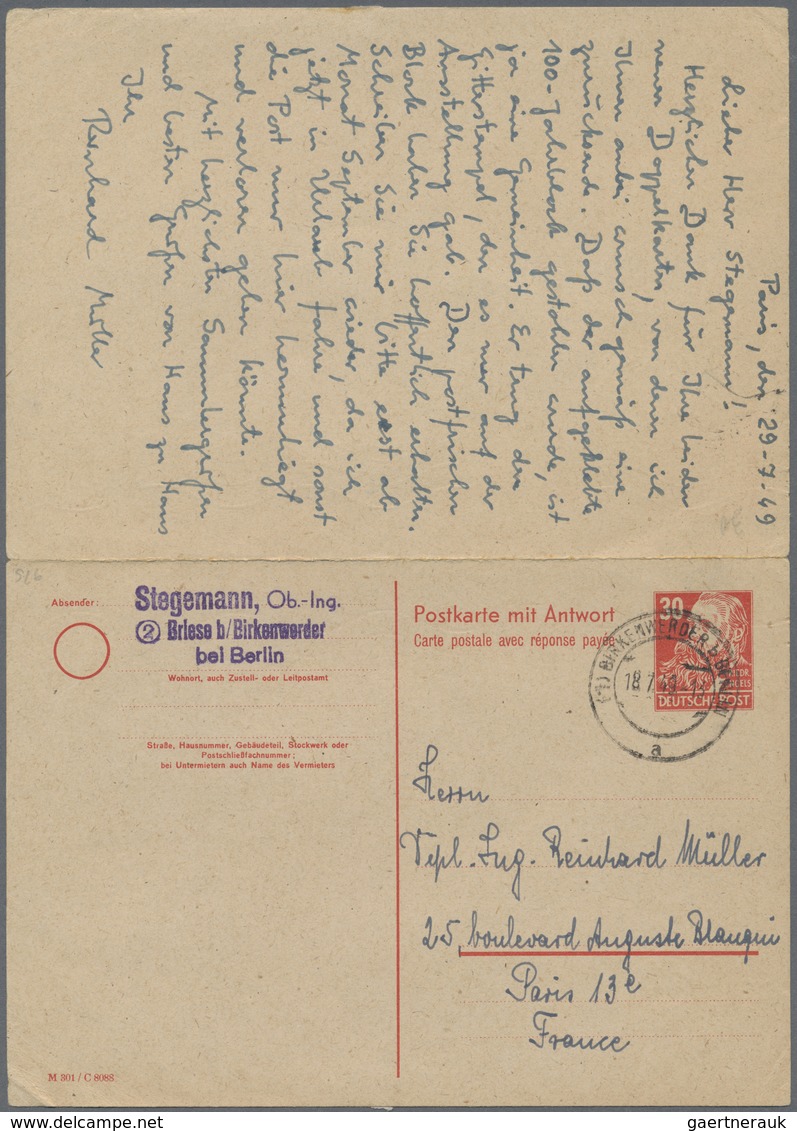 Paris, den 29-7-49
Lieber Herr Stegemann!
Herzlichen Dank für Ihre beiden
neuen Doppelkarten, von denen ich
Ihnen anbei wunschgemäß eine
zurücksende. Daß der aufgeklebte
100-Jahrblock gestohlen wurde, ist
ja eine Gemeinheit. Er trug den
Gitterstempel, den es nur auf der
Ausstellung gab. Den postfrischen
Block haben Sie hoffentlich erhalten.
Schreiben Sie mir bitte erst ab
Monat September wieder, da ich
jetzt in Urlaub fahre und sonst
die Post nur hier herumliegt
und verloren gehen könnte.
Mit herzlichsten Sammlergrüßen
und besten Grüßen von Haus zu Haus
Ihr
Reinhard Müller
526
Absender:
Stegemann, Ob.-Ing.
② Briese b/Birkenwerder
bei Berlin
Wohnort, auch Zustell- oder Leitpostamt
Straße, Hausnummer, Gebäudeteil, Stockwerk oder
Postschließfachnummer;
bei Untermietern auch Name des Vermieters
M 301 / C 8088
Postkarte mit Antwort
Carte postale avec réponse payée
30
DEUTSCHE POST
BIRKENWERDER b. BERLIN
18.7.49
a
Herrn
Dipl. Ing. Reinhard Müller
25, boulevard Auguste Blanqui
Paris 13e
France
gaertnerauk